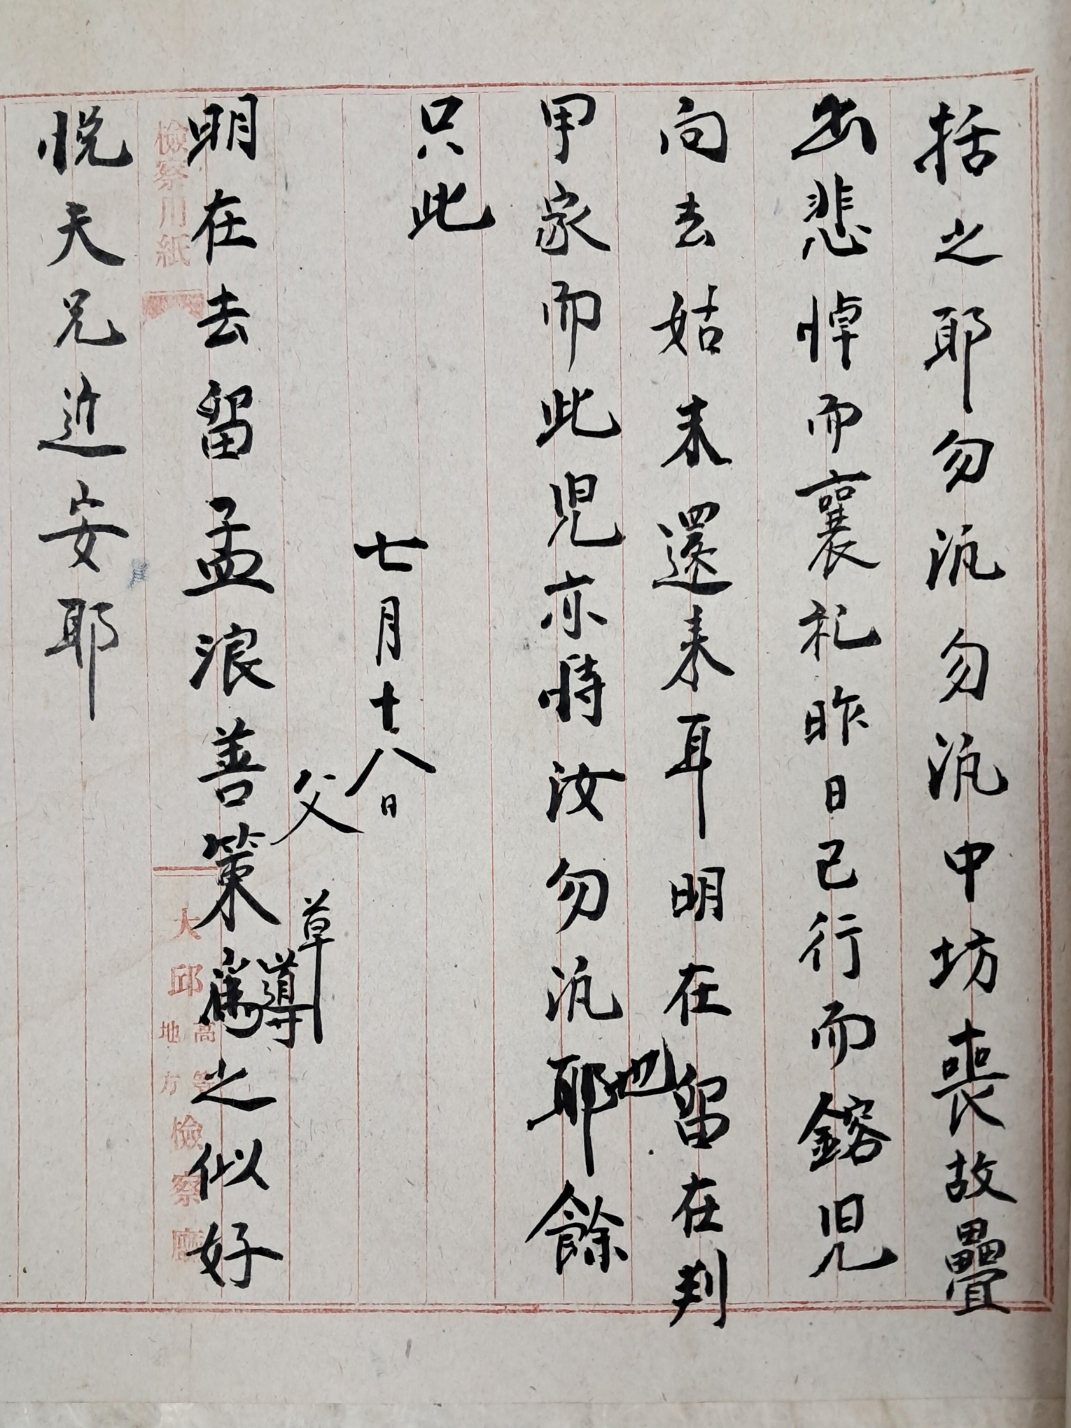 括之耶勿汎勿汎中坊喪故疊
出悲悼而襄札昨日已行而鎔兒
向去姑未還來耳明在留在判
甲家而此兒亦將汝勿汎耶餘
也
只此
七月十八日
父
草
明在去留孟浪善策爲之似好
導
悅天兄近安耶
檢察用紙
大邱
高等
地方
檢察廳